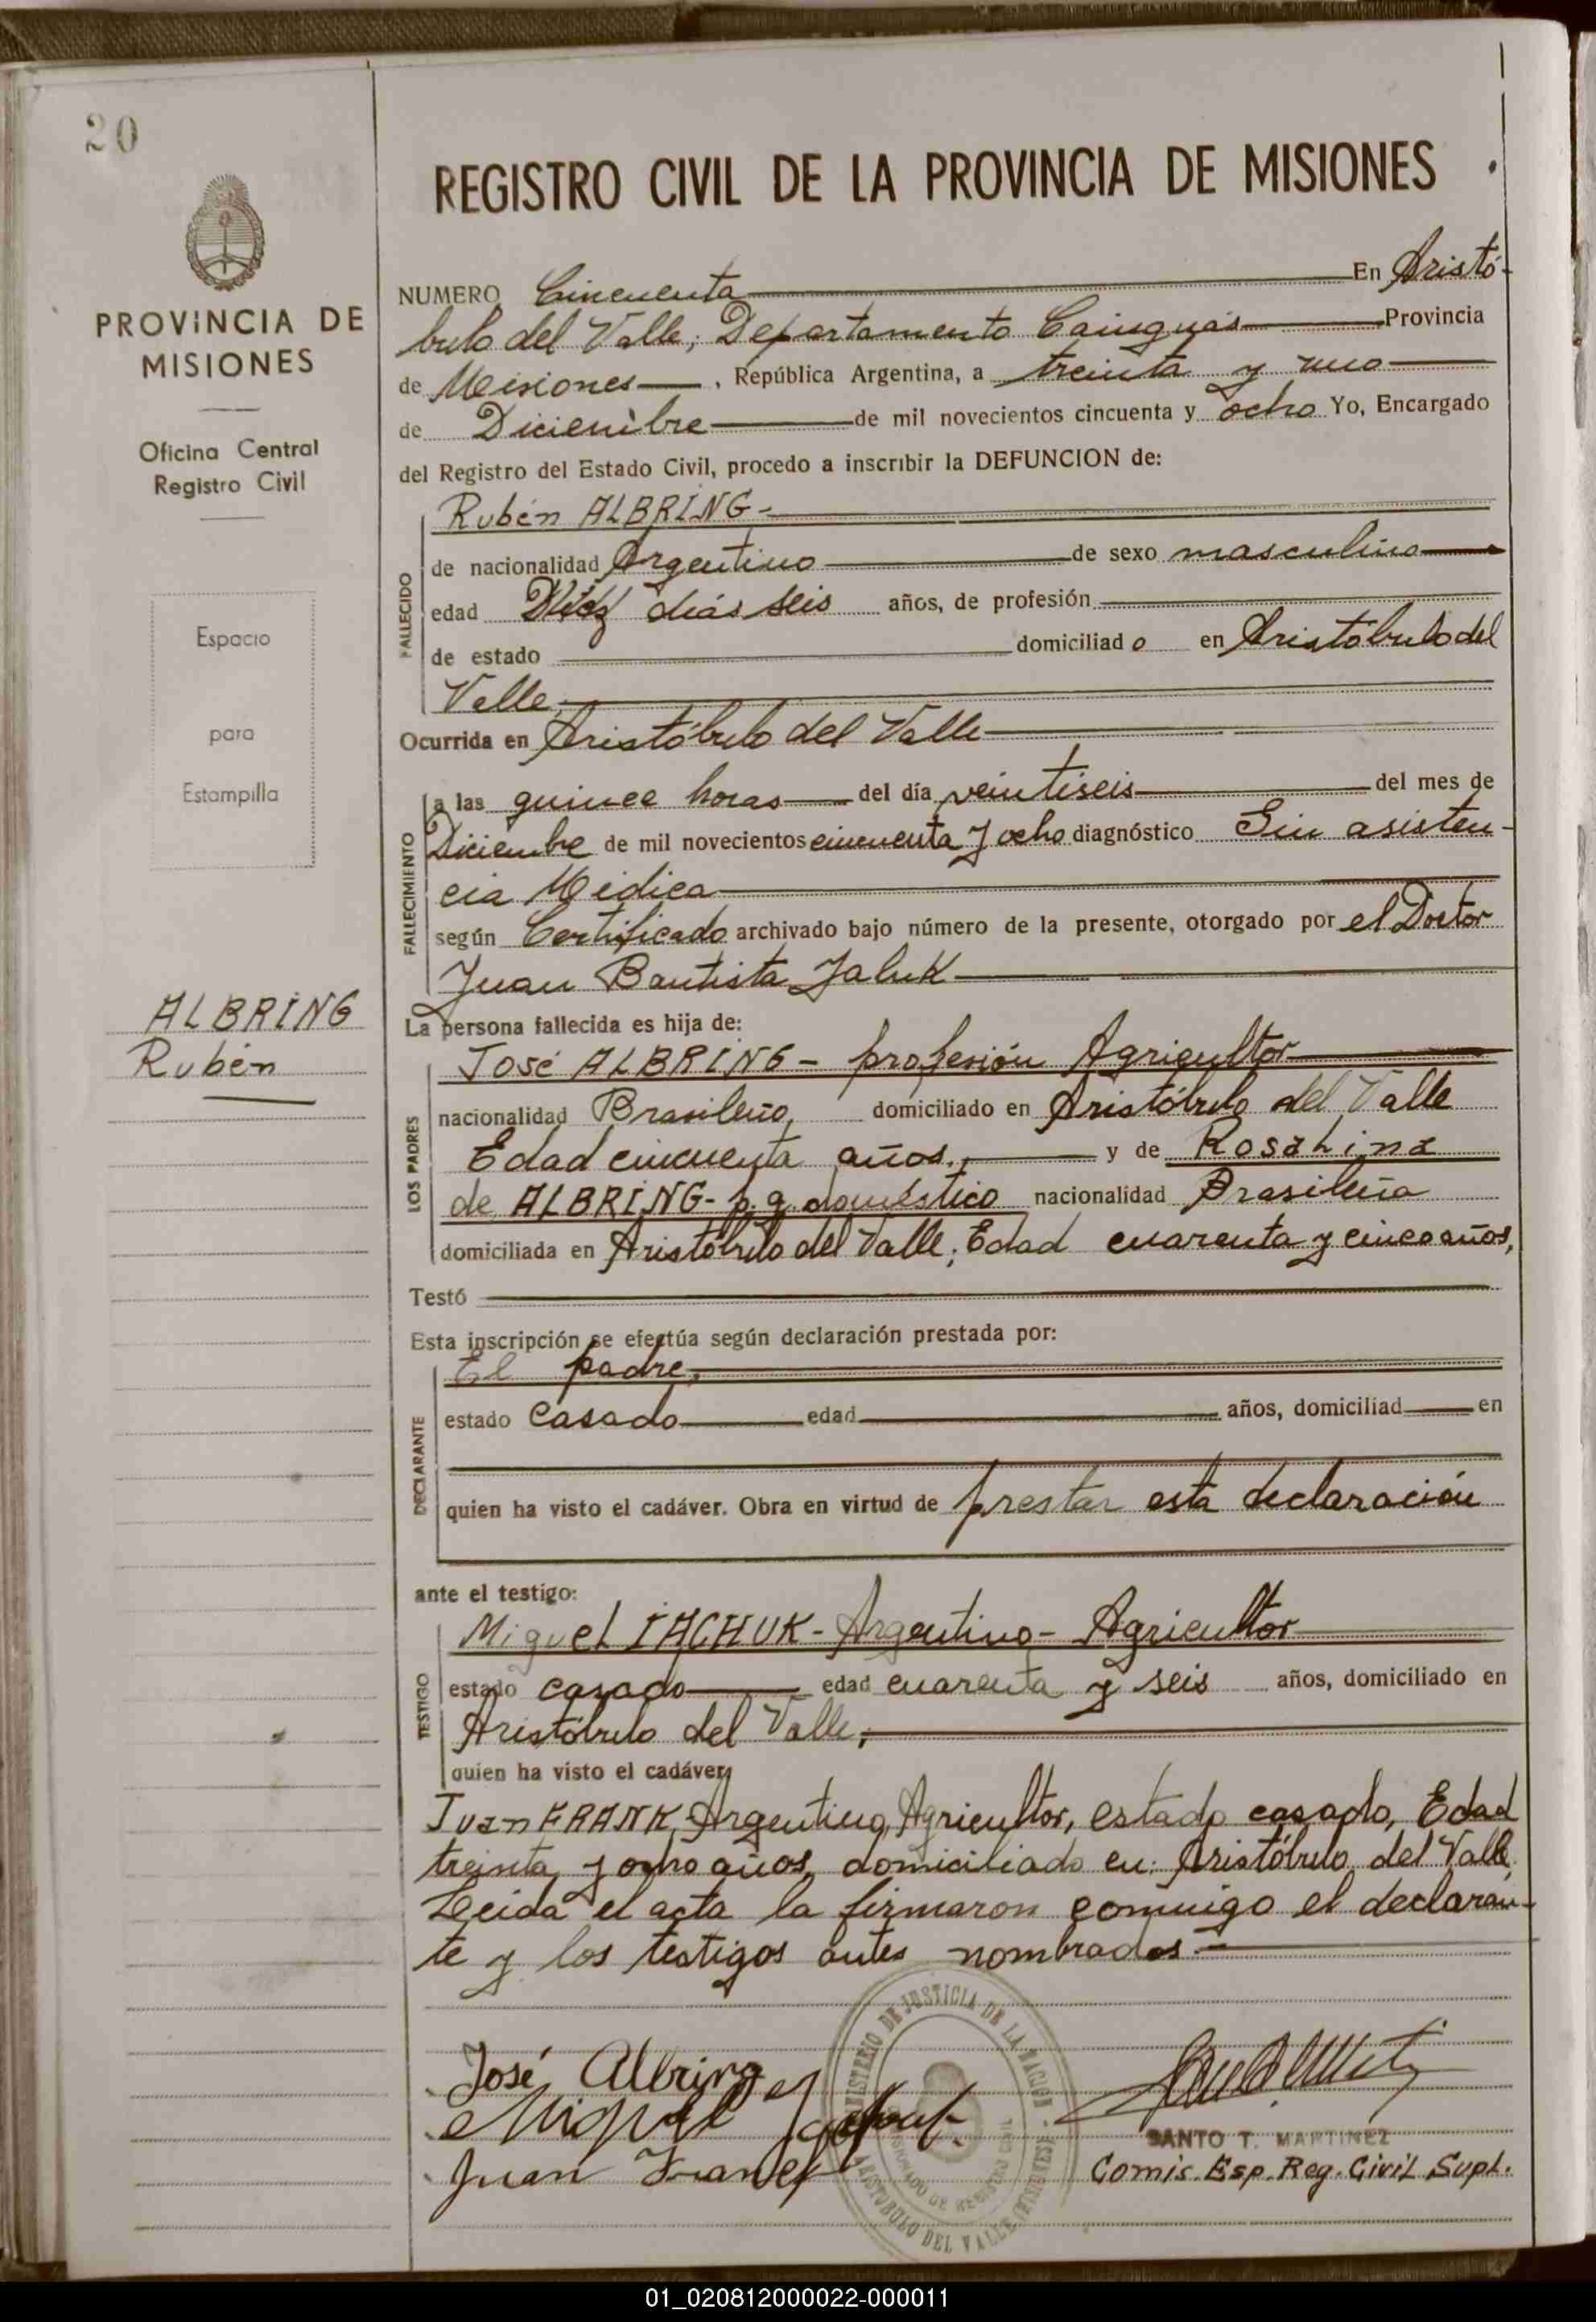 20
PROVINCIA DE
MISIONES
Oficina Central
Registro Civil
Espacio
para
Estampilla
ALBRING
Rubén
REGISTRO CIVIL DE LA PROVINCIA DE MISIONES
NUMERO Cincuenta En Aristó-
bulo del Valle; Departamento Cainguás Provincia
de Misiones, República Argentina, a treinta y uno
de Diciembre de mil novecientos cincuenta y ocho Yo, Encargado
del Registro del Estado Civil, procedo a inscribir la DEFUNCION de:
Rubén ALBRING-
FALLECIDO
de nacionalidad Argentino de sexo masculino
edad días seis años, de profesión
de estado domiciliado en Aristóbulo del
Valle
Ocurrida en Aristóbulo del Valle
FALLECIMIENTO
a las quince horas del día veintiseis del mes de
Diciembre de mil novecientos cincuenta y ocho diagnóstico Sin asisten-
cia Médica
según Certificado archivado bajo número de la presente, otorgado por el Doctor
Juan Bautista Jaluk
La persona fallecida es hija de:
LOS PADRES
José ALBRING - profesión Agricultor
nacionalidad Brasileño, domiciliado en Aristóbulo del Valle
Edad cincuenta años., y de Rosalina
de ALBRING- p. q. doméstico nacionalidad Brasileña
domiciliada en Aristóbulo del Valle; Edad cuarenta y cinco años,
Testó
Esta inscripción se efectúa según declaración prestada por:
DECLARANTE
El padre,
estado casado edad años, domiciliad en
quien ha visto el cadáver. Obra en virtud de prestar esta declaración
ante el testigo:
TESTIGO
Miguel IACHUK - Argentino - Agricultor
estado casado edad cuarenta y seis años, domiciliado en
Aristóbulo del Valle;
quien ha visto el cadáver,
Juan FRANK, Argentino, Agricultor, estado casado, Edad
treinta y ocho años, domiciliado en: Aristóbulo del Valle.
Leida el acta la firmaron conmigo el declaran-
te y los testigos antes nombrados.-
José Albring
Miguel
Juan
MINISTERIO DE JUSTICIA DE LA NACION
ARISTOBULO DEL VALLE (MISIONES)
SANTO T. MARTINEZ
Comis. Esp. Reg. Civil Supl.
01_020812000022-000011